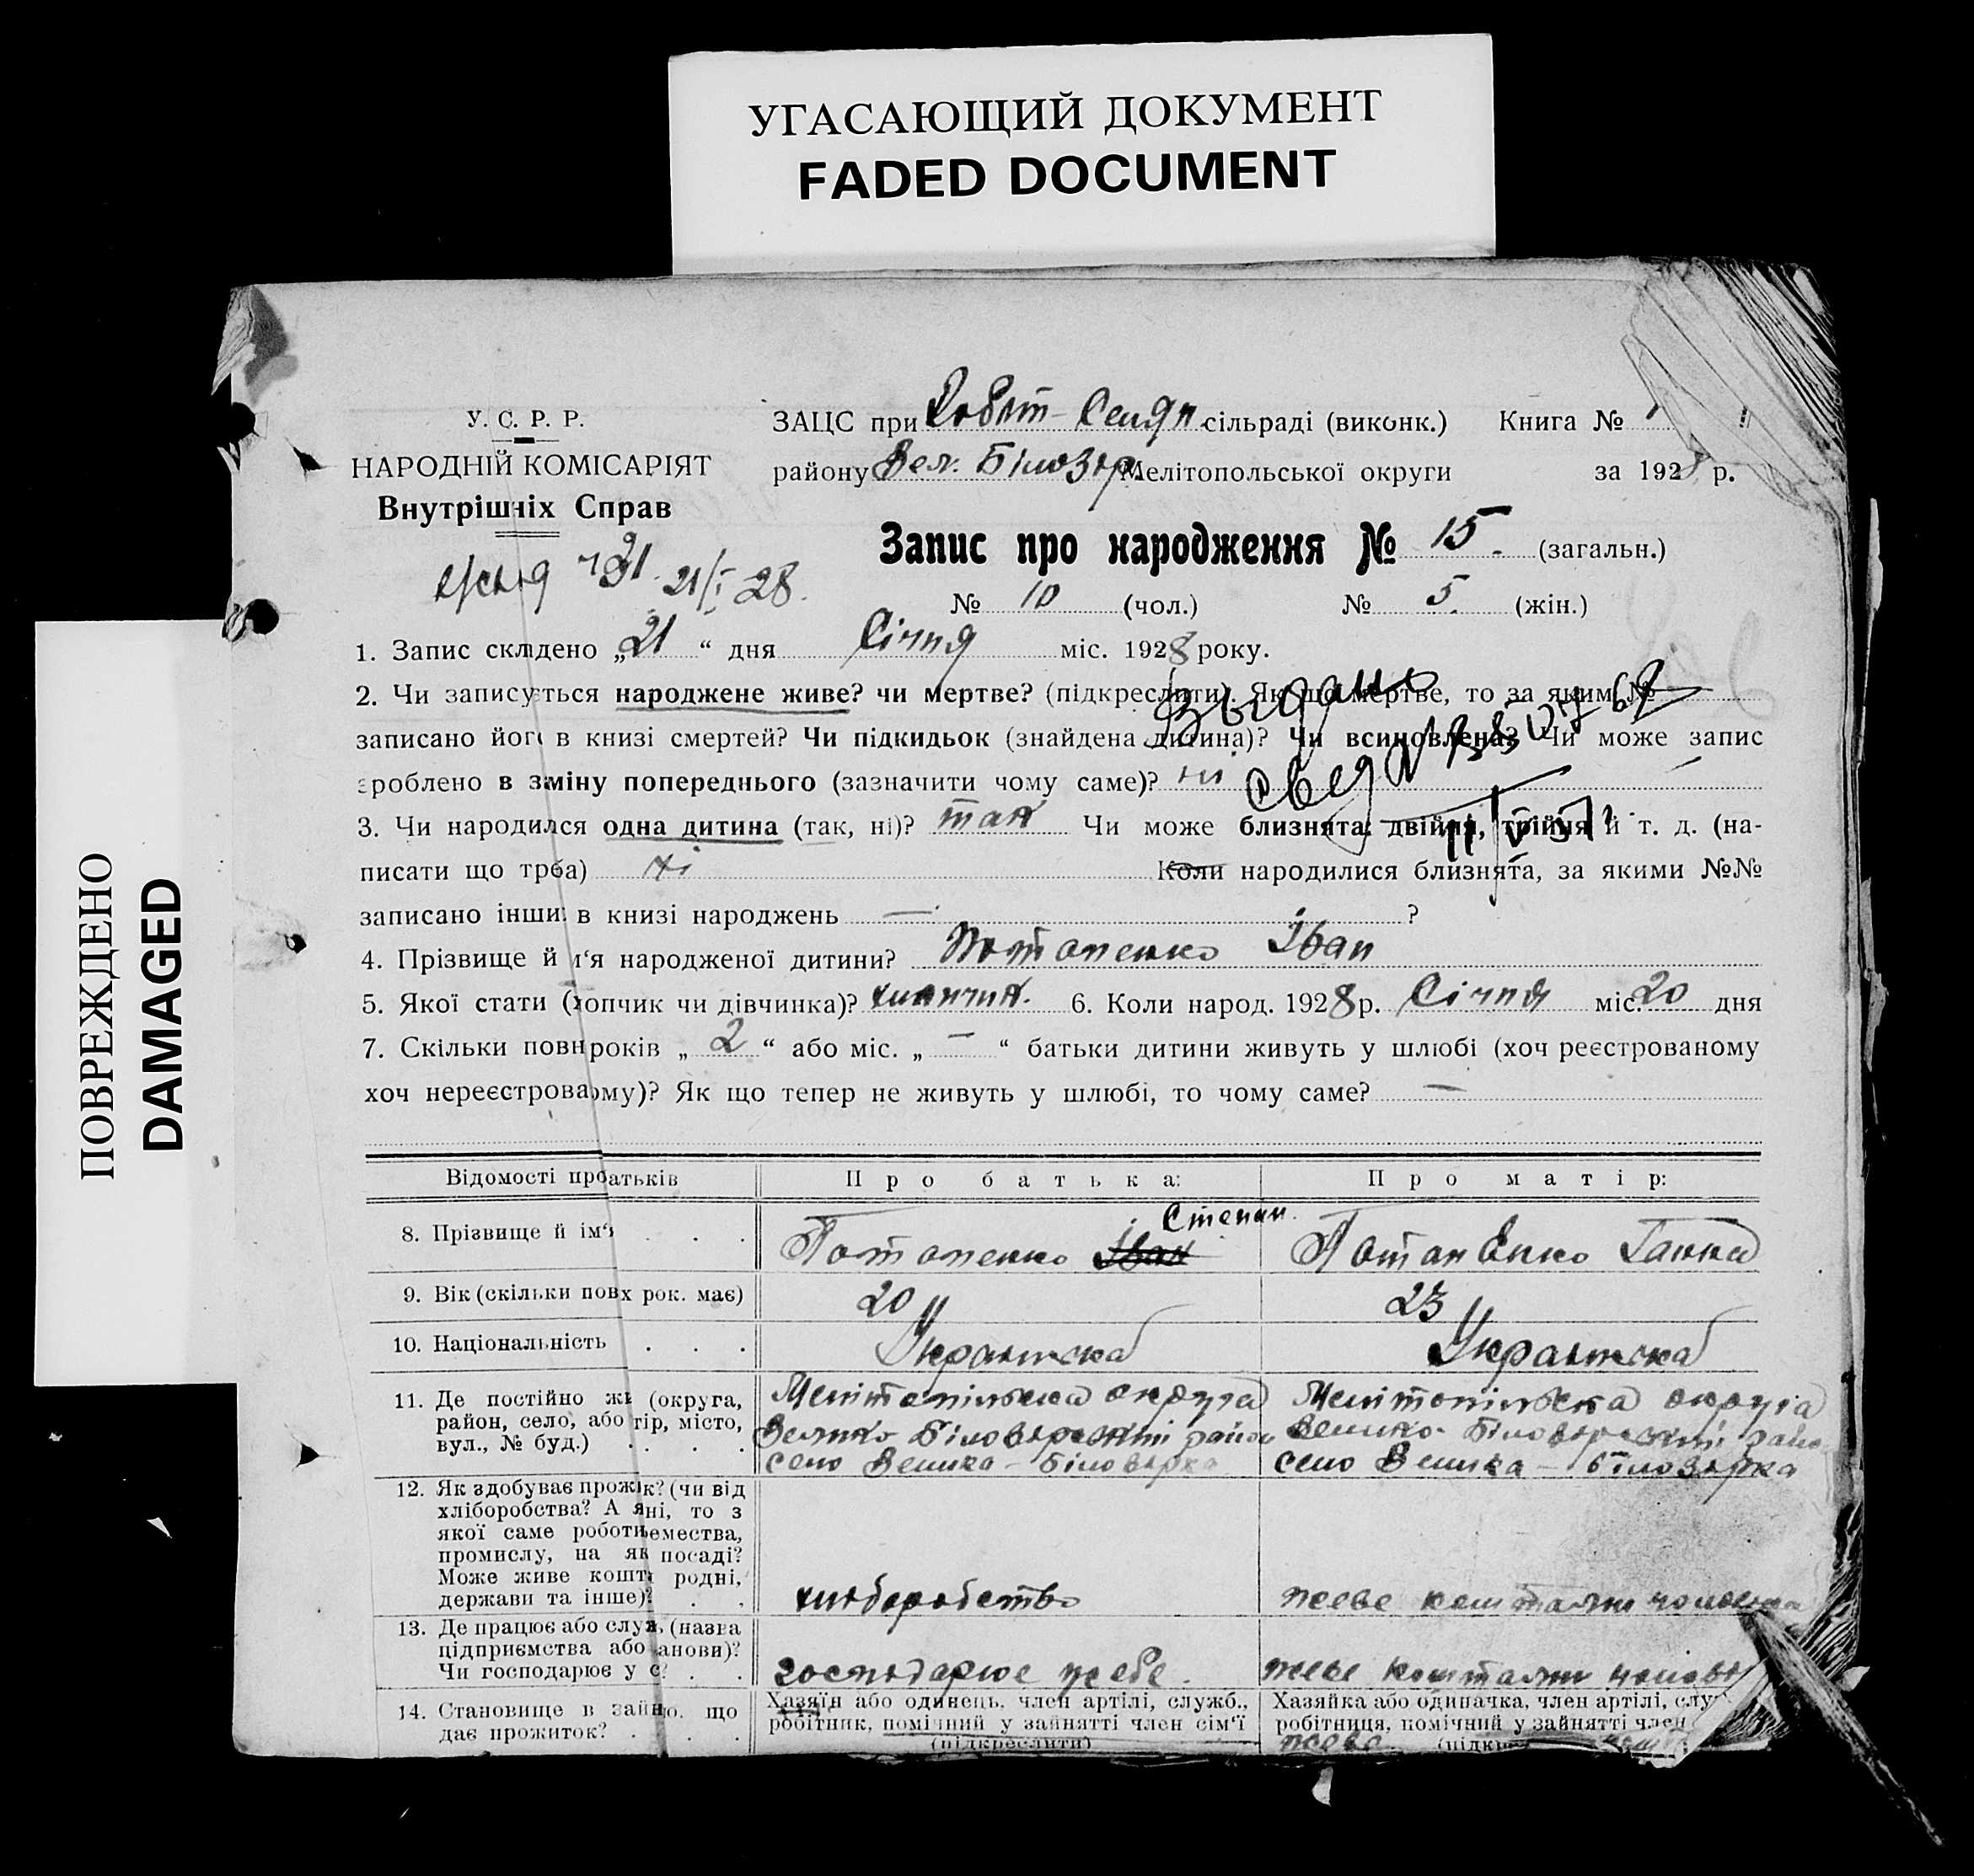 УГАСАЮЩИЙ ДОКУМЕНТ
FADED DOCUMENT
ПОВРЕЖДЕНО
DAMAGED
У. С. Р. Р.
НАРОДНІЙ КОМІСАРІЯТ
Внутрішніх Справ
21/I 28.
ЗАЦС при сільраді (виконк.) Книга №
району Вел. Білозір. Мелітопольської округи за 1928 р.
Запис про народження № 15. (загальн.)
№ 10 (чол.) № 5. (жін.)
1. Запис складено „21“ дня Січня міс. 1928 року.
2. Чи записується народжене живе? чи мертве? (підкреслити). Як що мертве, то за яким №
записано його в книзі смертей? Чи підкидьок (знайдена дитина)? Чи всиновлена? Чи може запис
зроблено в зміну попереднього (зазначити чому саме)? ні
Выдано
свед
3. Чи народился одна дитина (так, ні)? так Чи може близнята: двійня, трійня й т. д. (на-
писати що трба) ні Коли народилися близнята, за якими №№
записано інши в книзі народжень — ?
4. Прізвище й м‘я народженої дитини? Потопенко Іван
5. Якої стати (хопчик чи дівчинка)? хлопчик. 6. Коли народ. 1928 р. Січня міс. 20 дня
7. Скільки повн років „2“ або міс. „—“ батьки дитини живуть у шлюбі (хоч реєстрованому
хоч нереєстрованому)? Як що тепер не живуть у шлюбі, то чому саме? —
Відомості про батьків Про батька: Про матір:
Степан.
8. Прізвище й ім‘я . . . Потопенко Іван Потапенко Ганна
9. Вік (скільки повх рок. має) 20 23
10. Національність . . . Українська Українська
11. Де постійно жи (округа, Мелітопільська округа Мелітопільська округа
район, село, або тір, місто, Велико-Білозерський район Велико-Білозерський район
вул., № буд.) . . . . село Велика-Білозірка село Велика-Білозірка
12. Як здобуває прожик? (чи від
хліборобства? А яні, то з
якої саме роботи емества,
промислу, на як посаді?
Може живе кошт родні,
держави та інше)? . . хліборобство живе коштами чоловіка
13. Де працює або служ. (назва
підприємства або анови)?
Чи господарює у с? . . господарює себе. живе коштами чолові
14. Становище в зайню. що Хазяїн або одинець, член артілі, служб., Хазяйка або одиначка, член артілі, слу
дає прожиток? . . . робітник, помічний у зайнятті член сім‘ї робітниця, помічний у зайнятті член
(підкреслити) живе (підкр